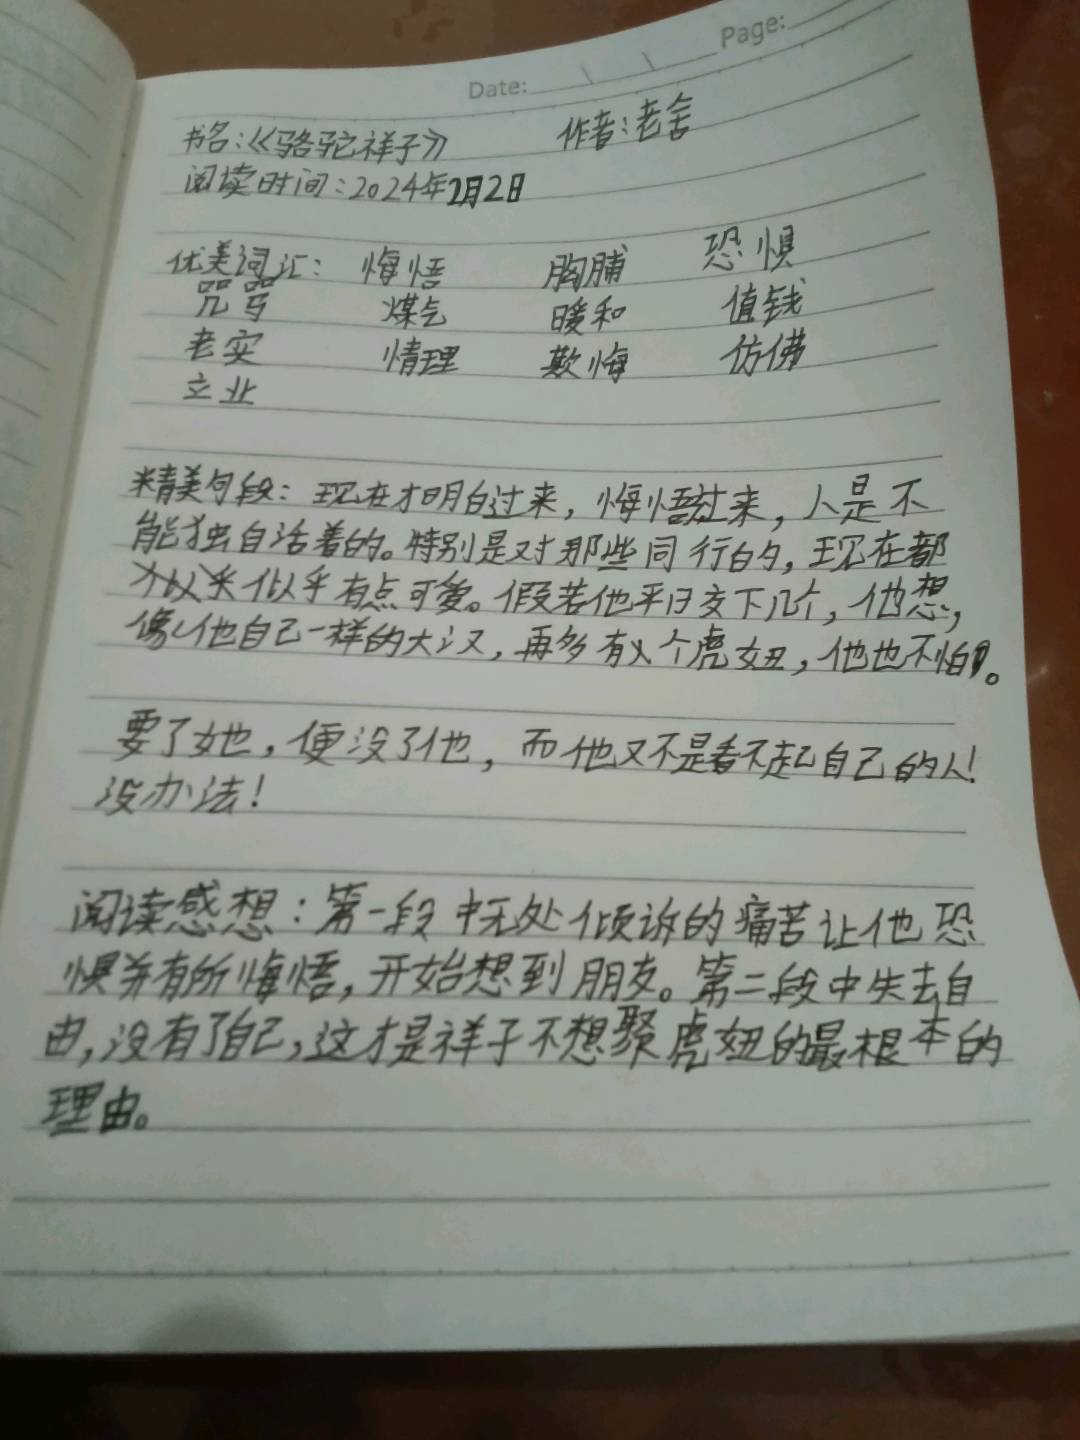 Date: \ \ Page:
书名:《骆驼祥子》 作者:老舍
阅读时间:2024年2月2日
优美词汇: 悔悟 胸脯 恐惧
咒骂 煤气 暖和 值钱
老实 情理 欺悔 仿佛
立业
精美句段:现在才明白过来,悔悟过来,人是不
能独自活着的。特别是对那些同行的,现在都
似乎似乎有点可爱。假若他平日交下几个,他想,
像他自己一样的大汉,再多有个虎妞,他也不怕。
要了她,便没了他,而他又不是看不起自己的人!
没办法!
阅读感想:第一段中无处倾诉的痛苦让他恐
惧并有所悔悟,开始想到朋友。第二段中失去自
由,没有了自己,这才是祥子不想聚虎妞的最根本的
理由。